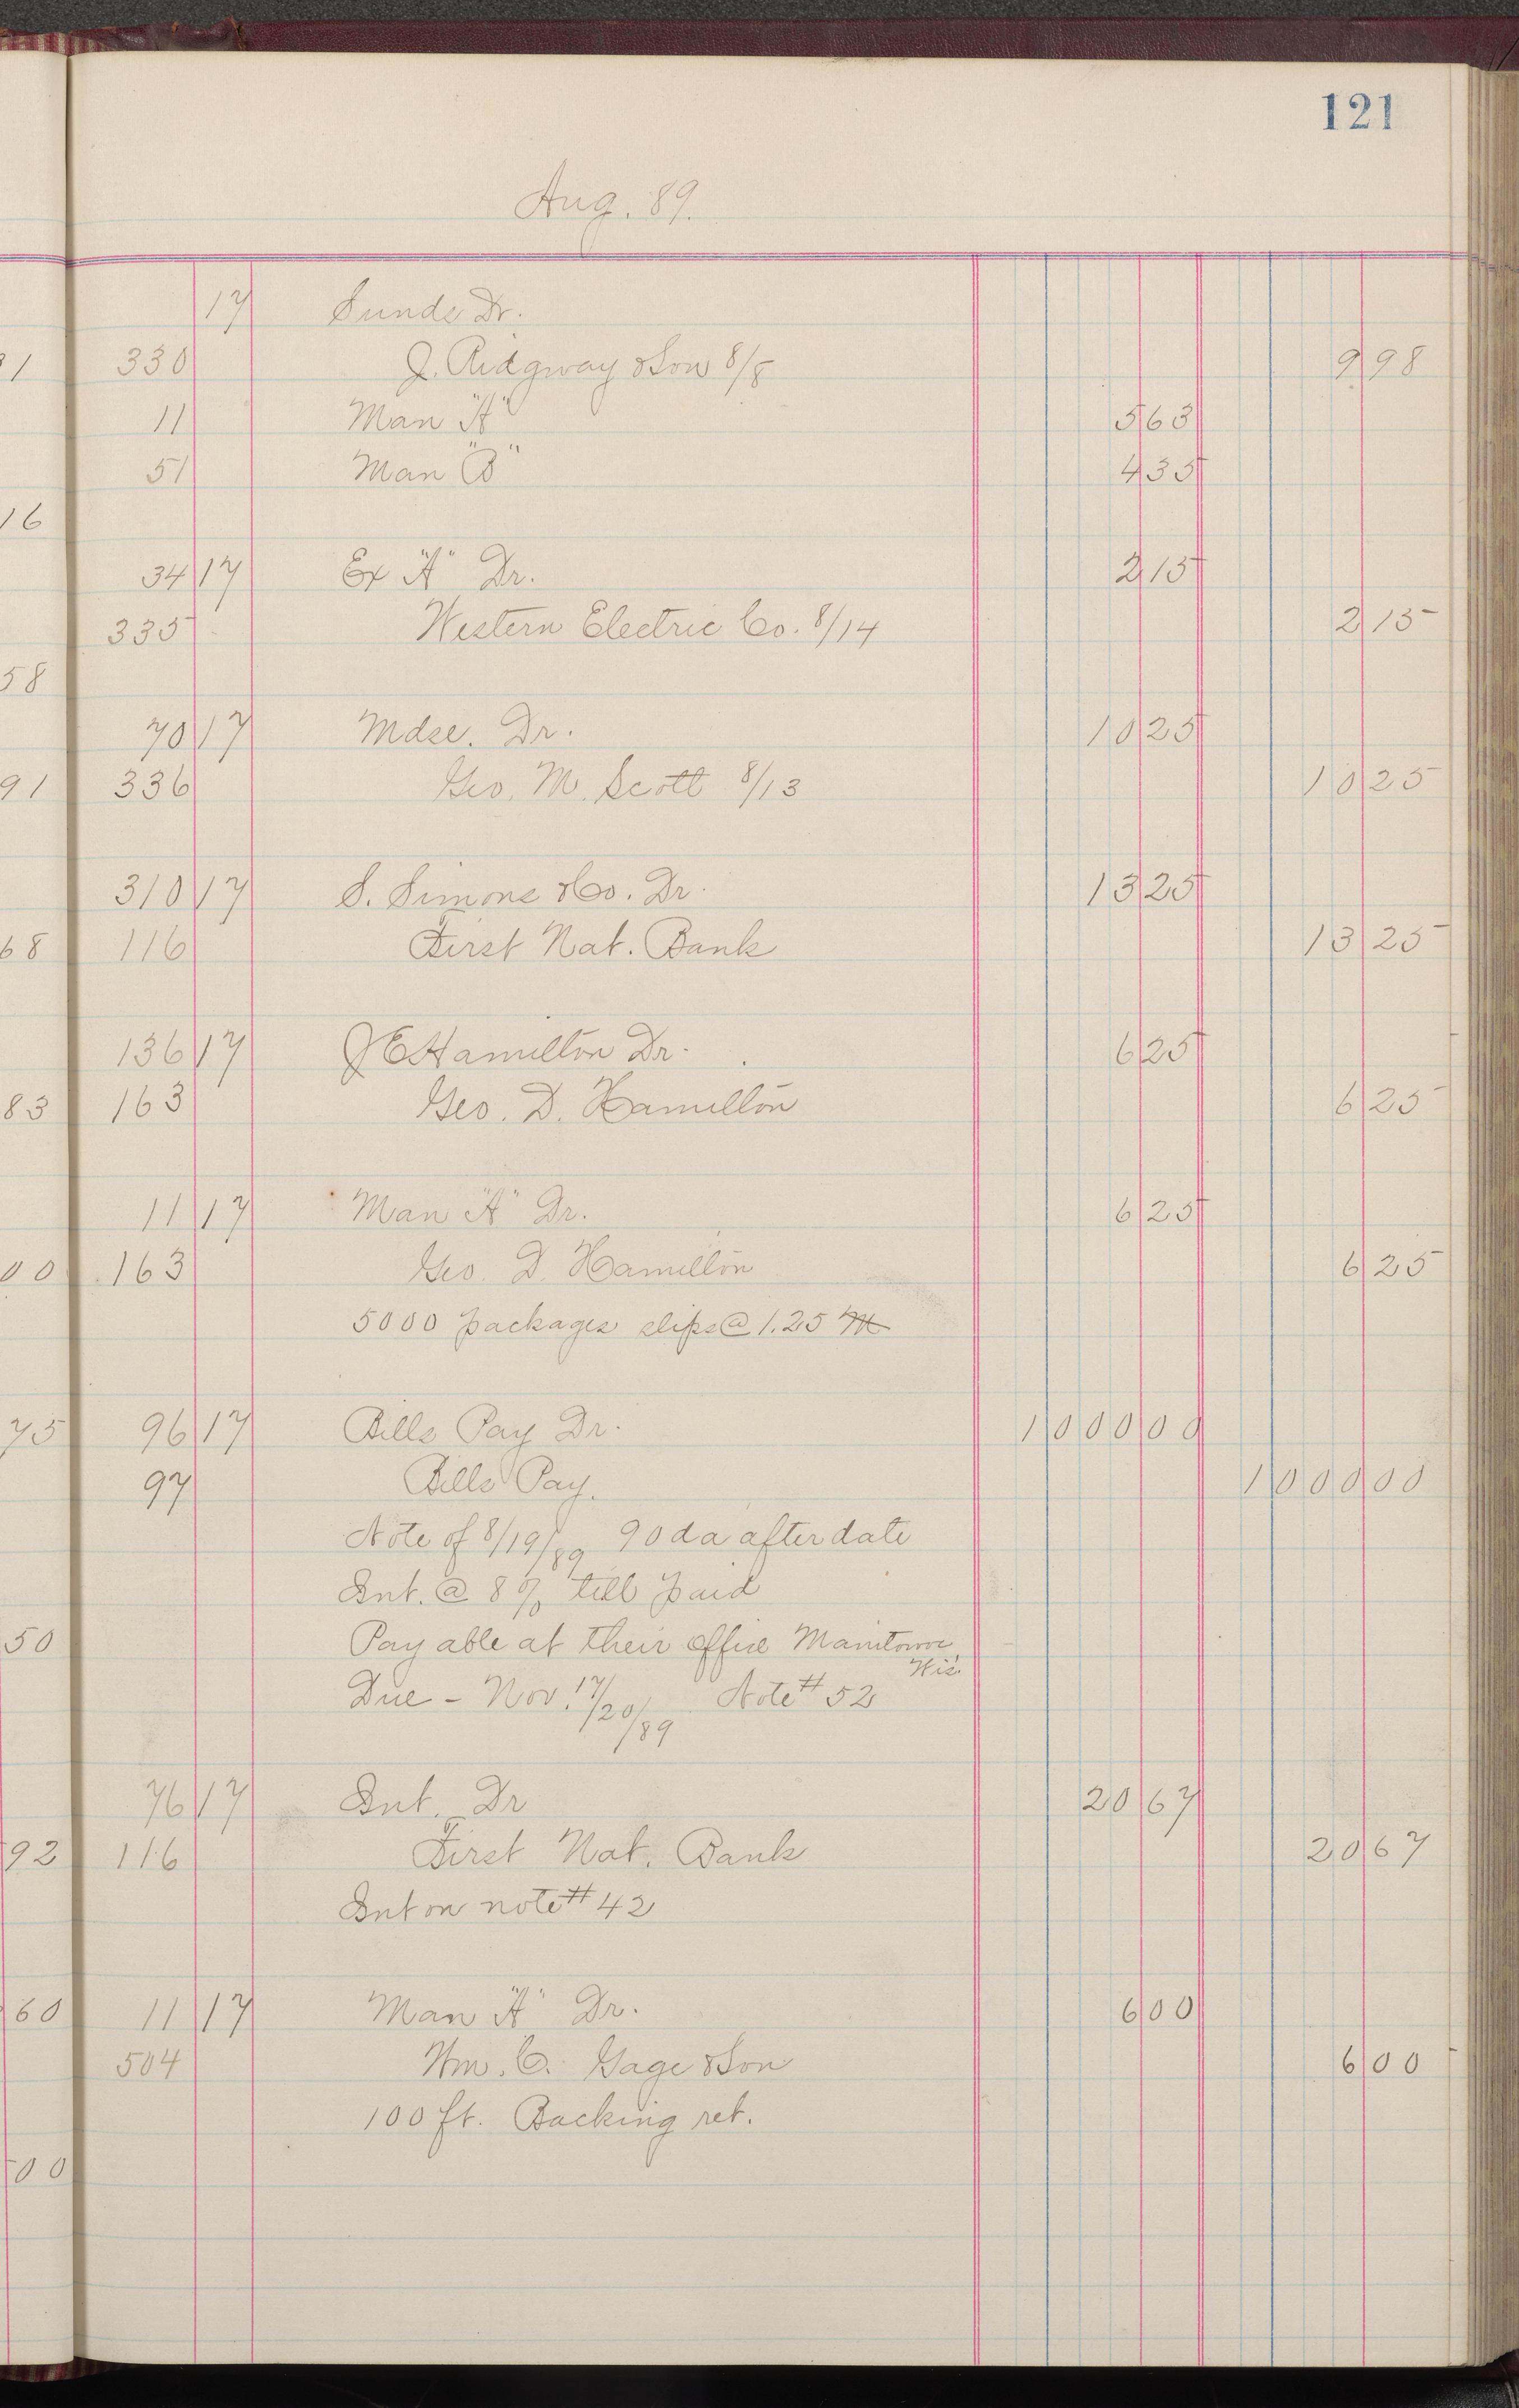 121
Aug. 89.
17 Sunds Dr.
330 J. Ridgway & Son 8/8 9 98
11 Man "A" 5 63
51 Man "B" 4 35
34 17 Ex "A" Dr. 2 15
335 Western Electric Co. 8/14 2 15
70 17 Mdse. Dr. 10 25
336 Geo. M. Scott 8/13 10 25
310 17 S. Simons & Co. Dr. 13 25
116 First Nat. Bank 13 25
136 17 J E Hamilton Dr. 6 25
163 Geo. D. Hamilton 6 25
11 17 Man "A" Dr. 6 25
163 Geo. D. Hamilton 6 25
5000 packages slips @ 1.25 M
96 17 Bills Pay Dr. 1000 00
97 Bills Pay. 1000 00
Note of 8/19/89 90 da after date
Int. @ 8% till paid
Payable at their office Manitowoc, Wis.
Due - Nov. 17/20/89 Note # 52
76 17 Int. Dr 20 67
116 First Nat. Bank 20 67
Int on note # 42
11 17 Man "A" Dr. 6 00
504 Wm. C. Gage & Son 6 00
100 ft. Backing ret.